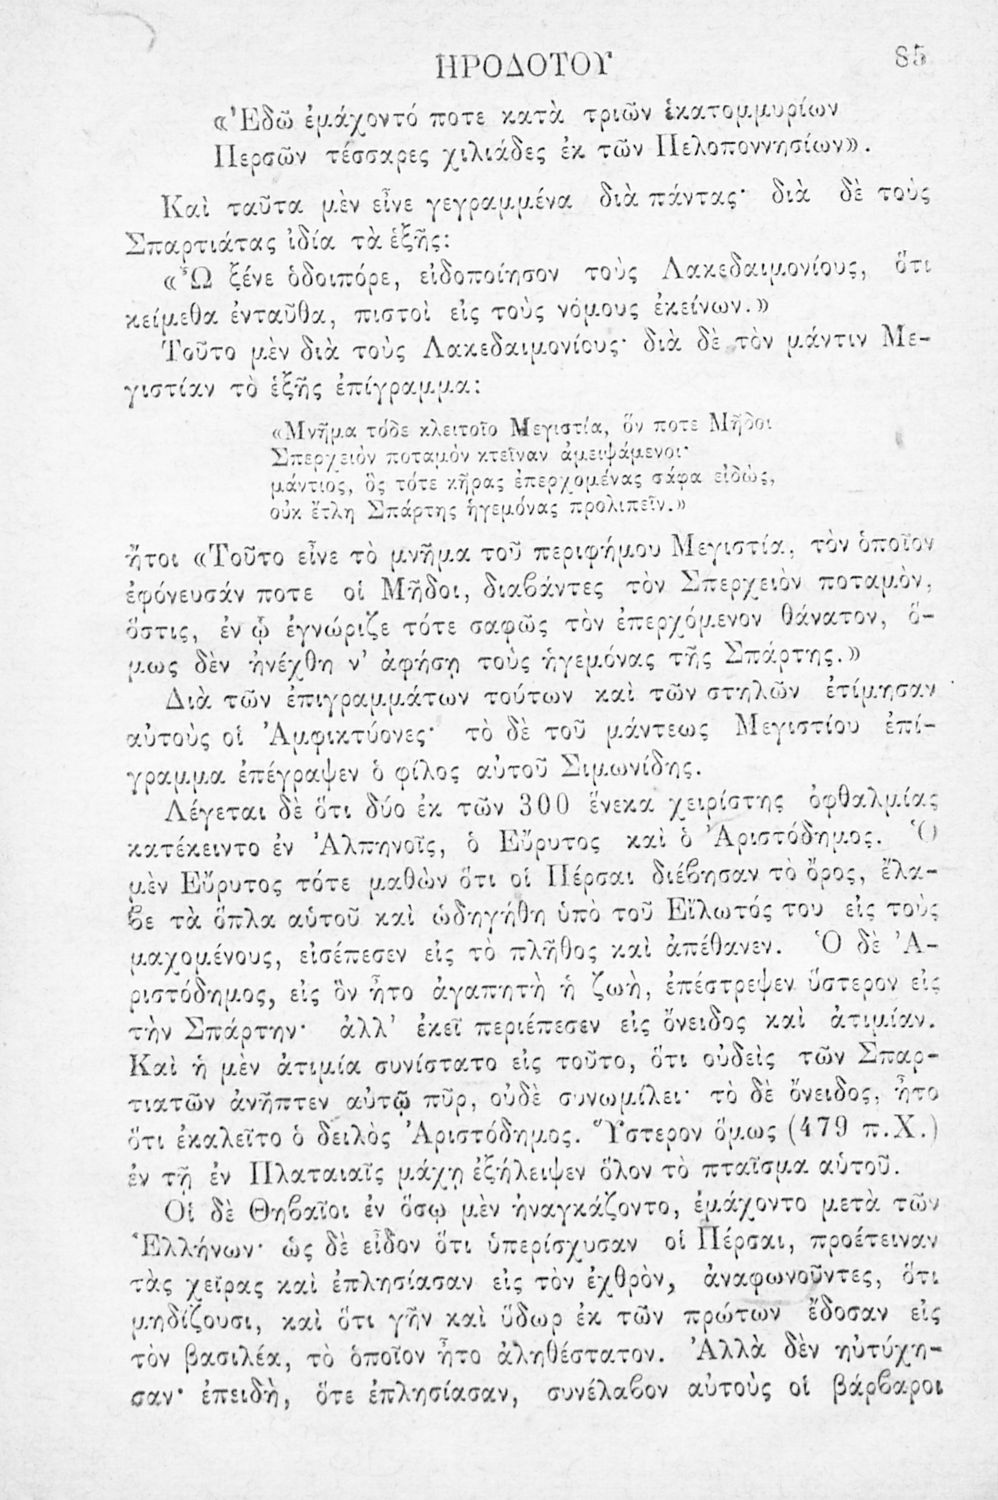 ΗΡΟΔΟΤΟΥ 85
«Ἐδῶ ἐμάχοντό ποτε κατὰ τριῶν ἑκατομμυρίων
Περσῶν τέσσαρες χιλιάδες ἐκ τῶν Πελοποννησίων».
Καὶ ταῦτα μὲν εἶνε γεγραμμένα διὰ πάντας· διὰ δὲ τοὺς
Σπαρτιάτας ἰδίᾳ τὰ ἑξῆς:
«Ὦ ξένε ὁδοιπόρε, εἰδοποίησον τοὺς Λακεδαιμονίους, ὅτι
κείμεθα ἐνταῦθα, πιστοὶ εἰς τοὺς νόμους ἐκείνων.»
Τοῦτο μὲν διὰ τοὺς Λακεδαιμονίους· διὰ δὲ τὸν μάντιν Με-
γιστίαν τὸ ἑξῆς ἐπίγραμμα:
«Μνῆμα τόδε κλειτοῖο Μεγιστία, ὅν ποτε Μῆδοι
Σπερχειὸν ποταμὸν κτεῖναν ἀμειψάμενοι·
μάντιος, ὃς τότε κῆρας ἐπερχομένας σάφα εἰδὼς,
οὐκ ἔτλη Σπάρτης ἡγεμόνας προλιπεῖν.»
ἤτοι «Τοῦτο εἶνε τὸ μνῆμα τοῦ περιφήμου Μεγιστία, τὸν ὁποῖον
ἐφόνευσάν ποτε οἱ Μῆδοι, διαβάντες τὸν Σπερχειὸν ποταμὸν,
ὅστις, ἐν ᾧ ἐγνώριζε τότε σαφῶς τὸν ἐπερχόμενον θάνατον, ὅ-
μως δὲν ἠνέχθη ν' ἀφήσῃ τοὺς ἡγεμόνας τῆς Σπάρτης.»
Διὰ τῶν ἐπιγραμμάτων τούτων καὶ τῶν στηλῶν ἐτίμησαν
αὐτοὺς οἱ Ἀμφικτύονες· τὸ δὲ τοῦ μάντεως Μεγιστίου ἐπί-
γραμμα ἐπέγραψεν ὁ φίλος αὐτοῦ Σιμωνίδης.
Λέγεται δὲ ὅτι δύο ἐκ τῶν 300 ἕνεκα χειρίστης ὀφθαλμίας
κατέκειντο ἐν Ἀλπηνοῖς, ὁ Εὔρυτος καὶ ὁ Ἀριστόδημος. Ὁ
μὲν Εὔρυτος τότε μαθὼν ὅτι οἱ Πέρσαι διέβησαν τὸ ὄρος, ἔλα-
βε τὰ ὅπλα αὑτοῦ καὶ ὡδηγήθη ὑπὸ τοῦ Εἵλωτός του εἰς τοὺς
μαχομένους, εἰσέπεσεν εἰς τὸ πλῆθος καὶ ἀπέθανεν. Ὁ δὲ Ἀ-
ριστόδημος, εἰς ὃν ἦτο ἀγαπητὴ ἡ ζωὴ, ἐπέστρεψεν ὕστερον εἰς
τὴν Σπάρτην· ἀλλ' ἐκεῖ περιέπεσεν εἰς ὄνειδος καὶ ἀτιμίαν.
Καὶ ἡ μὲν ἀτιμία συνίστατο εἰς τοῦτο, ὅτι οὐδεὶς τῶν Σπαρ-
τιατῶν ἀνῆπτεν αὐτῷ πῦρ, οὐδὲ συνωμίλει· τὸ δὲ ὄνειδος, ἦτο
ὅτι ἐκαλεῖτο ὁ δειλὸς Ἀριστόδημος. Ὕστερον ὅμως (479 π.Χ.)
ἐν τῇ ἐν Πλαταιαῖς μάχῃ ἐξήλειψεν ὅλον τὸ πταῖσμα αὑτοῦ.
Οἱ δὲ Θηβαῖοι ἐν ὅσῳ μὲν ἠναγκάζοντο, ἐμάχοντο μετὰ τῶν
Ἑλλήνων· ὡς δὲ εἶδον ὅτι ὑπερίσχυσαν οἱ Πέρσαι, προέτειναν
τὰς χεῖρας καὶ ἐπλησίασαν εἰς τὸν ἐχθρὸν, ἀναφωνοῦντες, ὅτι
μηδίζουσι, καὶ ὅτι γῆν καὶ ὕδωρ ἐκ τῶν πρώτων ἔδοσαν εἰς
τὸν βασιλέα, τὸ ὁποῖον ἦτο ἀληθέστατον. Ἀλλὰ δὲν ηὐτύχη-
σαν· ἐπειδὴ, ὅτε ἐπλησίασαν, συνέλαβον αὐτοὺς οἱ βάρβαροι